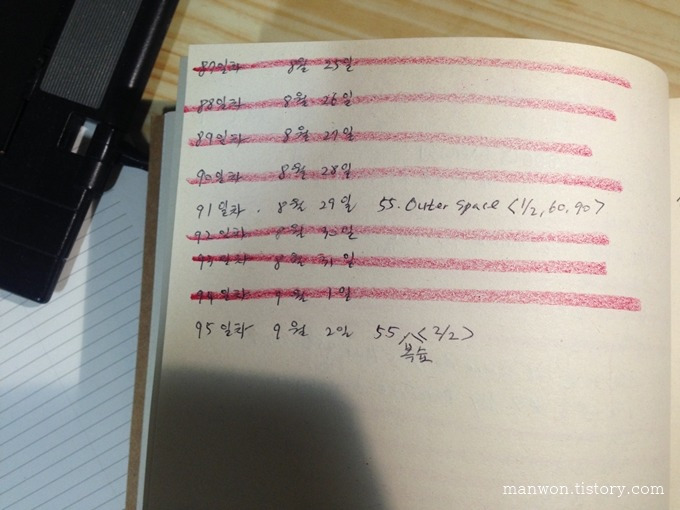 87일차 8월 25일
88일차 8월 26일
89일차 8월 27일
90일차 8월 28일
91일차. 8월 29일 55. Outer space <1/2, 60, 90>
92일차 8월 30일
93일차 8월 31일
94일차 9월 1일
95일차 9월 2일 55, <2/2>
복습
manwon.tistory.com